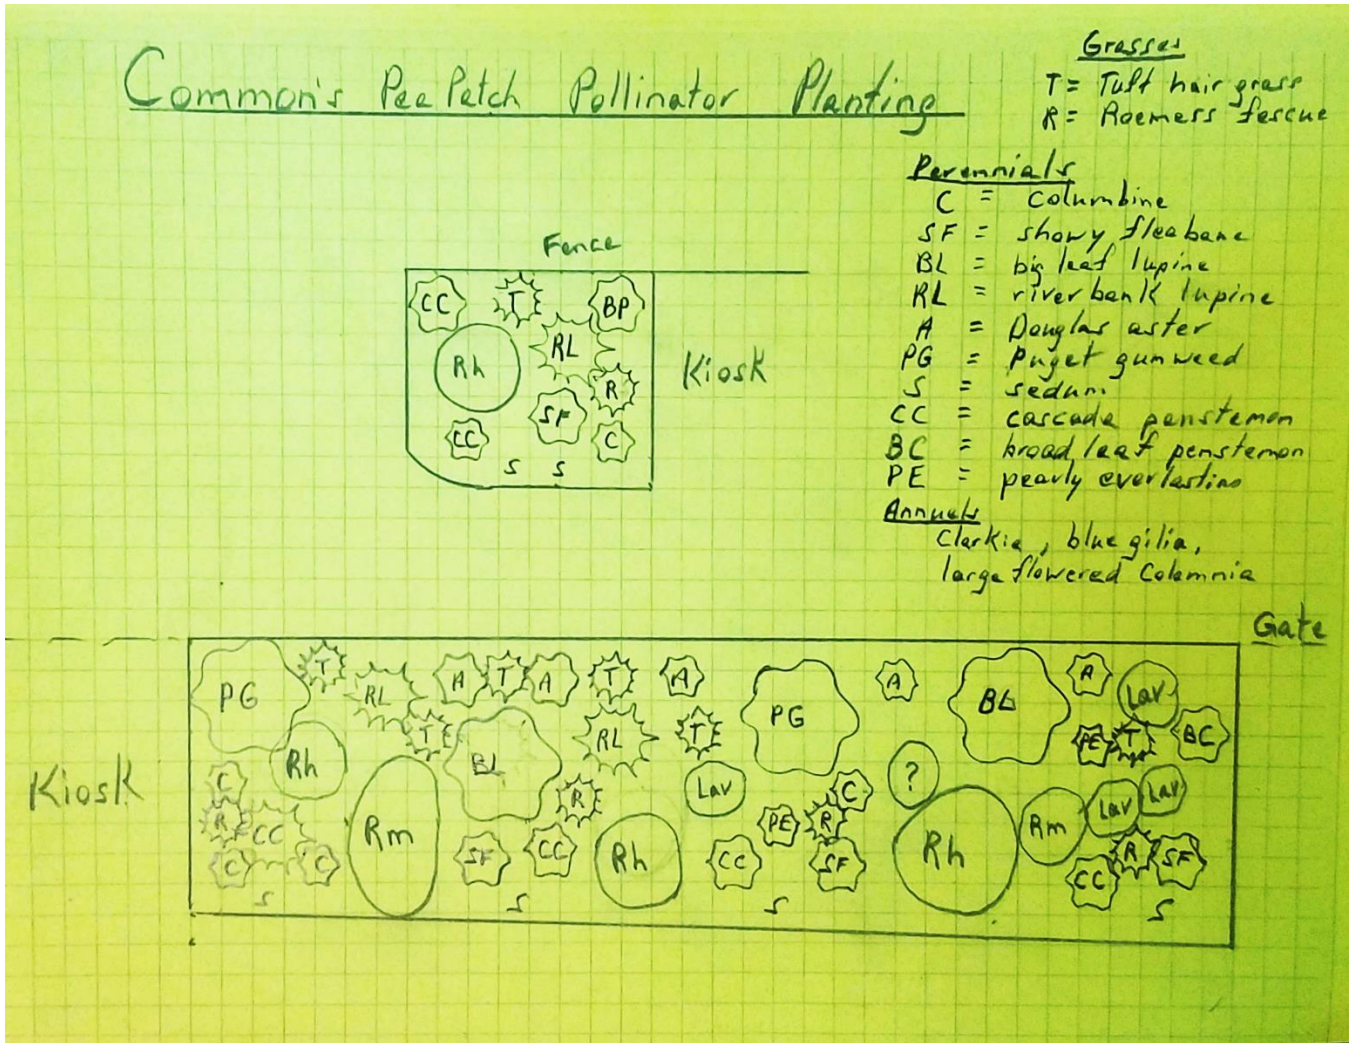 Common's Pee Patch Pollinator Planting
Grasses
T = Tuft hair grass
R = Roemess fescue
Perennials
C = columbine
SF = showy fleabane
BL = big leaf lupine
RL = riverbank lupine
A = Douglas aster
PG = Puget gumweed
S = sedum
CC = cascade penstemon
BC = broad leaf penstemon
PE = pearly everlasting
Annuals
Clarkia, blue gilia,
large flowered Colomnia
Fence
CC T BP
RL
Rh Kiosk
R
SF
CC C
S S
Gate
PG T RL A T A T A PG A BL A Lav
T BL RL T PE T BC
Rh ?
Kiosk
C R Lav C Lav Lav
R CC Rm PE R Rm
C C SF CC Rh CC SF Rh CC R SF
S S S S